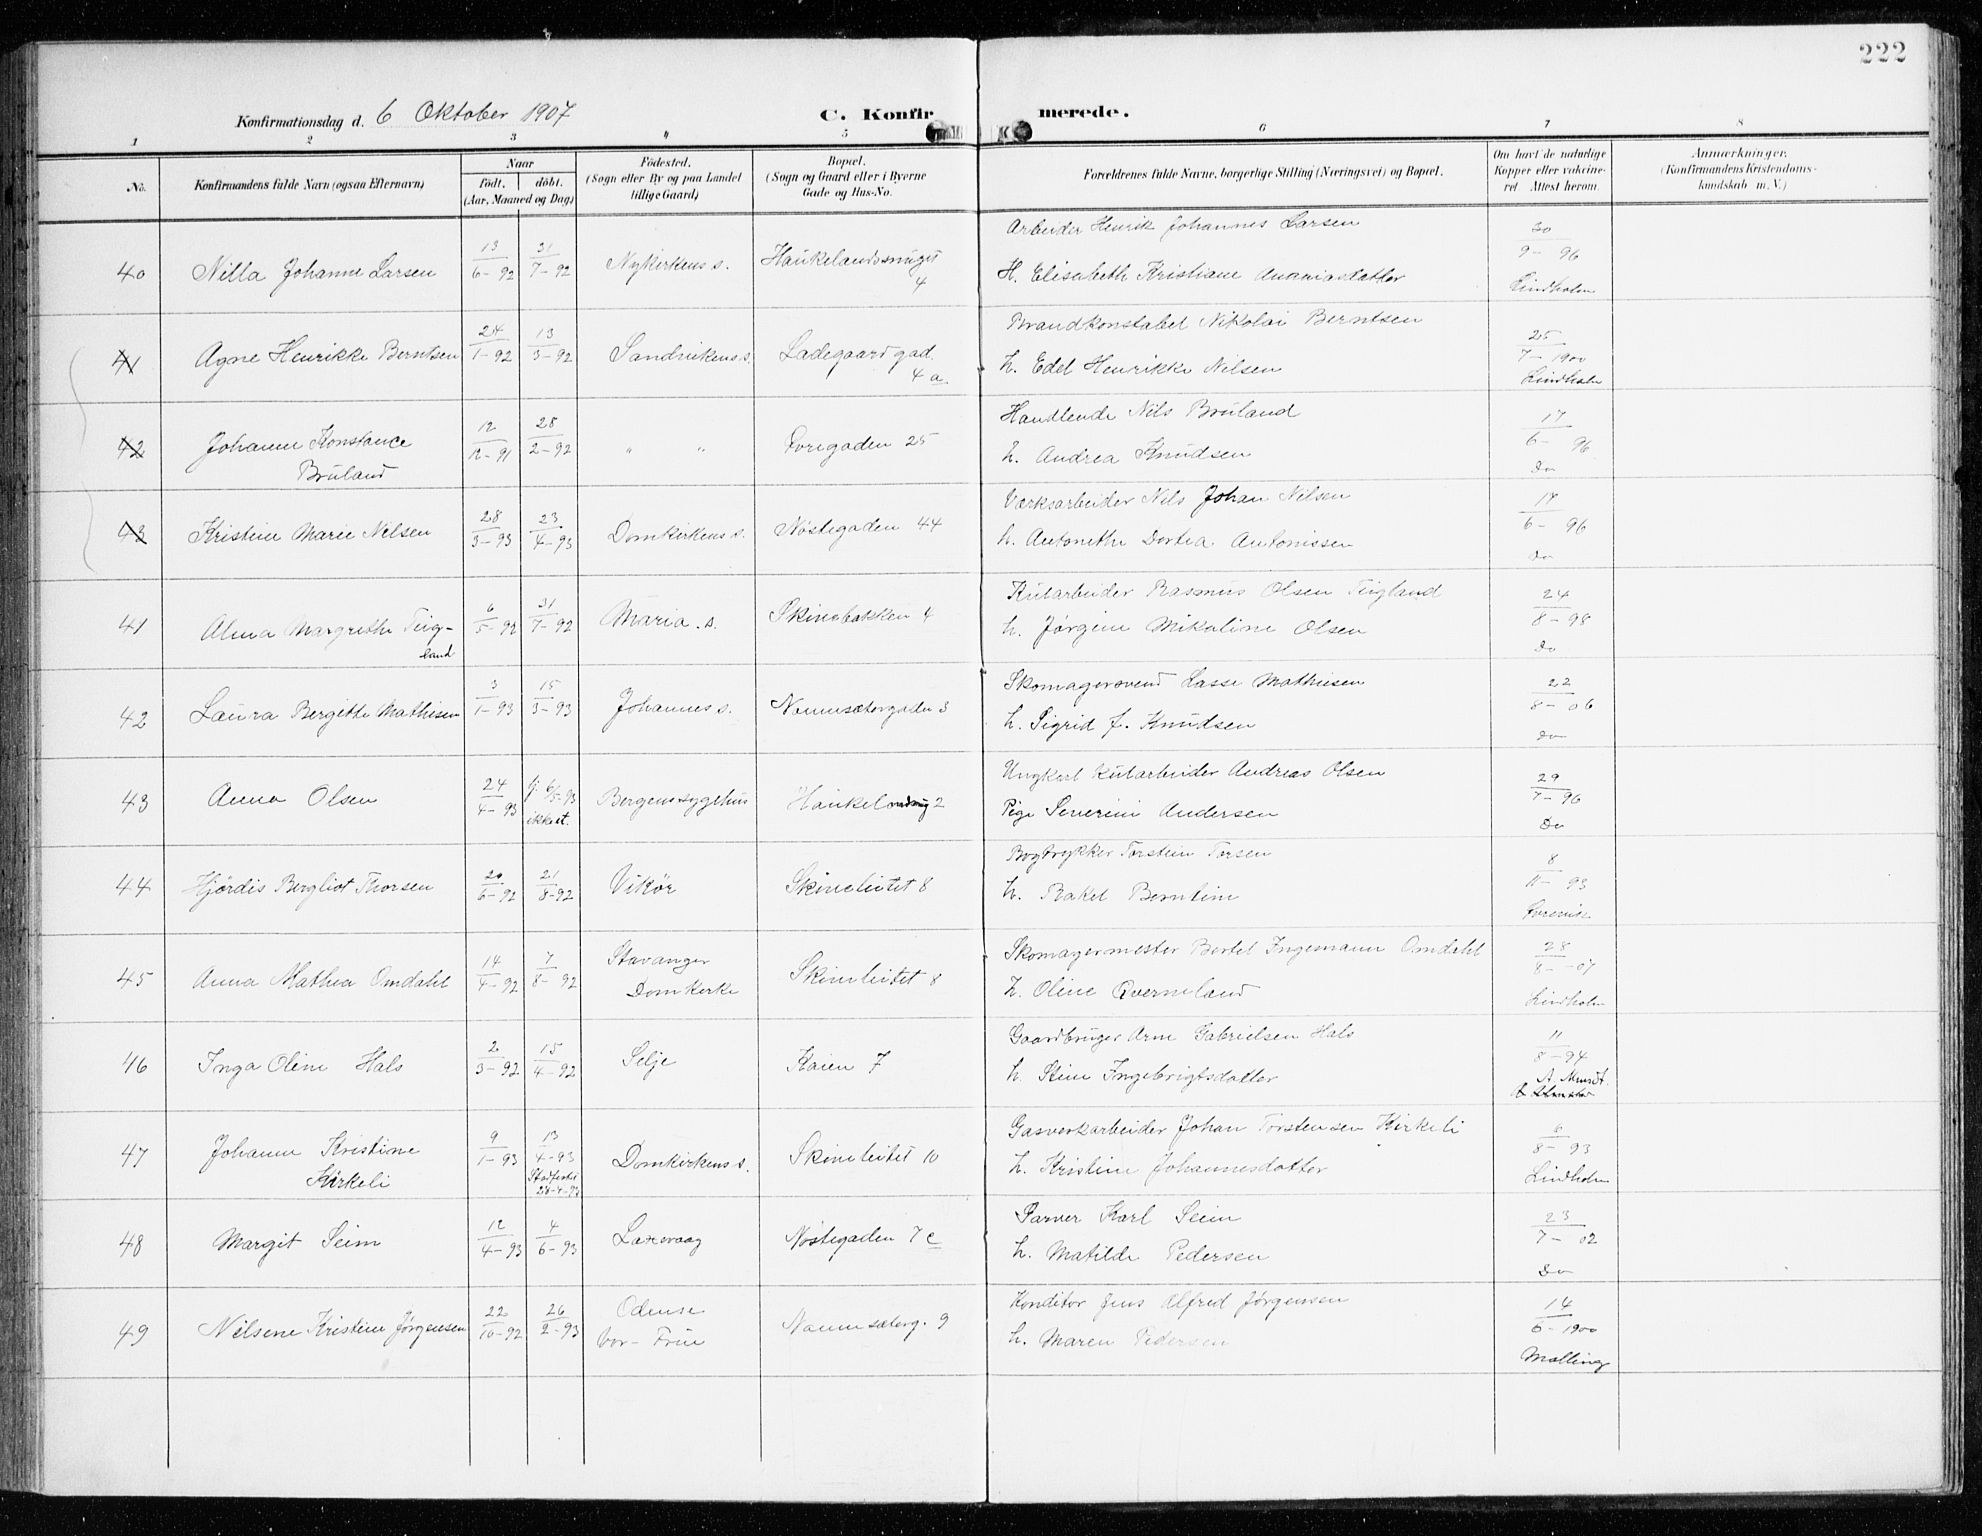 222
Konfirmationsdag d. 6 Oktober 1907 C. Konfirmerede.
1 2 3 " 5 6 7 8
No. Konfirmandens fulde Navn (ogsaa Efternavn)
Naar
födt. döbt.
(Aar, Maaned og Dag)
Födested.
(Sogn eller By og paa Landet
tillige Gaard)
Bopæl.
(Sogn og Gaard eller i Byerne
Gade og Hus-No.
Forældrenes fulde Navne, borgerlige Stilling (Næringsvei) og Bopæl.
Om havt de naturlige
Kopper eller vakcineret
Attest herom.
Anmærkninger.
(Konfirmandens Kristendomskundskab
m. V.)
Arbeider Henrik Johannes Larsen
40 Nilla Johanne Larsen 13/6-92 31/7-92 Nykirkens s. Haukelandssmuget 4 30/9-96
H. Elisabeth Kristiane
Lindholm
Brandkonstabel Nikolai Berntsen
41 Agne Henrikke Berntsen 24/1-92 13/3-92 Sandvikens s. Ladegaardgad. 4 a. 25/7-1900
h. Edel Henrikke Nilsen
Lindholm
Handlende Nils Bruland
42 Johanne Konstance 12/12-91 28/2-92 " " 25 17/6-96
Bruland
h. Andrea Knudsen
Do
Værksarbeider Nils Johan Nilsen
43 Kristine Marie Nilsen 28/3-93 23/4-93 Domkirkens s. Nöstegaden 44 17/6-96
h. Antonethe Dortea Antonissen
Do
Rasmus Olsen Teigland
41 Alma Margrethe Teig-
land
6/5-92 31/7-92 Maria s. Skinebakken 4 24/8-98
h. Jørgine Mikaline Olsen
Do
Skomagersvend Lasse Mathiesen
42 Laura Bergitte Mathisen 3/1-93 15/3-93 Johannes s. Nonnesætergaden 3 22/8-06
h. Sigrid f. Knudsen
Do
Ungkarl Andreas Olsen
43 Anna Olsen 24/4-93 6/5-93
ikke st.
Bergens sygehus 2 29/7-96
Pige Severine Andersen
Do
Bogtrykker Torstein Torsen
44 Hjørdis Bergliot Thorsen 20/6-92 21/8-92 Vikör Skineleitet 8 8/11-93
h. Rakel Berntine
Skomagermester Bertel Ingemann Omdahl
45 Anna Mathea Omdahl 14/4-92 7/8-92 Stavanger
Domkirke
Skineleitet 8 28/8-07
h. Oline Qverneland
Lindholm
Gaardbruger Arne Gabrielsen Hals
46 Inga Oline Hals 2/3-92 15/4-92 Selje Kaien 7 11/8-94
h. Stine Ingebrigtsdatter
Gasverkarbeider Johan Torstensen Kirkeli
47 Johanne Kristine
Kirkeli
9/1-93 13/4-93
Stadfestet
23-4-93
Domkirkens s. Skineleitet 10 6/8-93
h. Kristine Johannesdatter
Lindholm
Garver Karl Seim
48 Margit Seim 12/4-93 4/6-93 Laxevaag Nöstegaden 7 c 23/7-02
h. Matilde Pedersen
Do
Konditor Jens Alfred Jørgensen
49 Nilsene Kristine Jørgensen 22/10-92 26/2-93 Odense
Vor-Frue
Nonnesæterg. 9 14/6-1900
h. Maren Pedersen
Malling